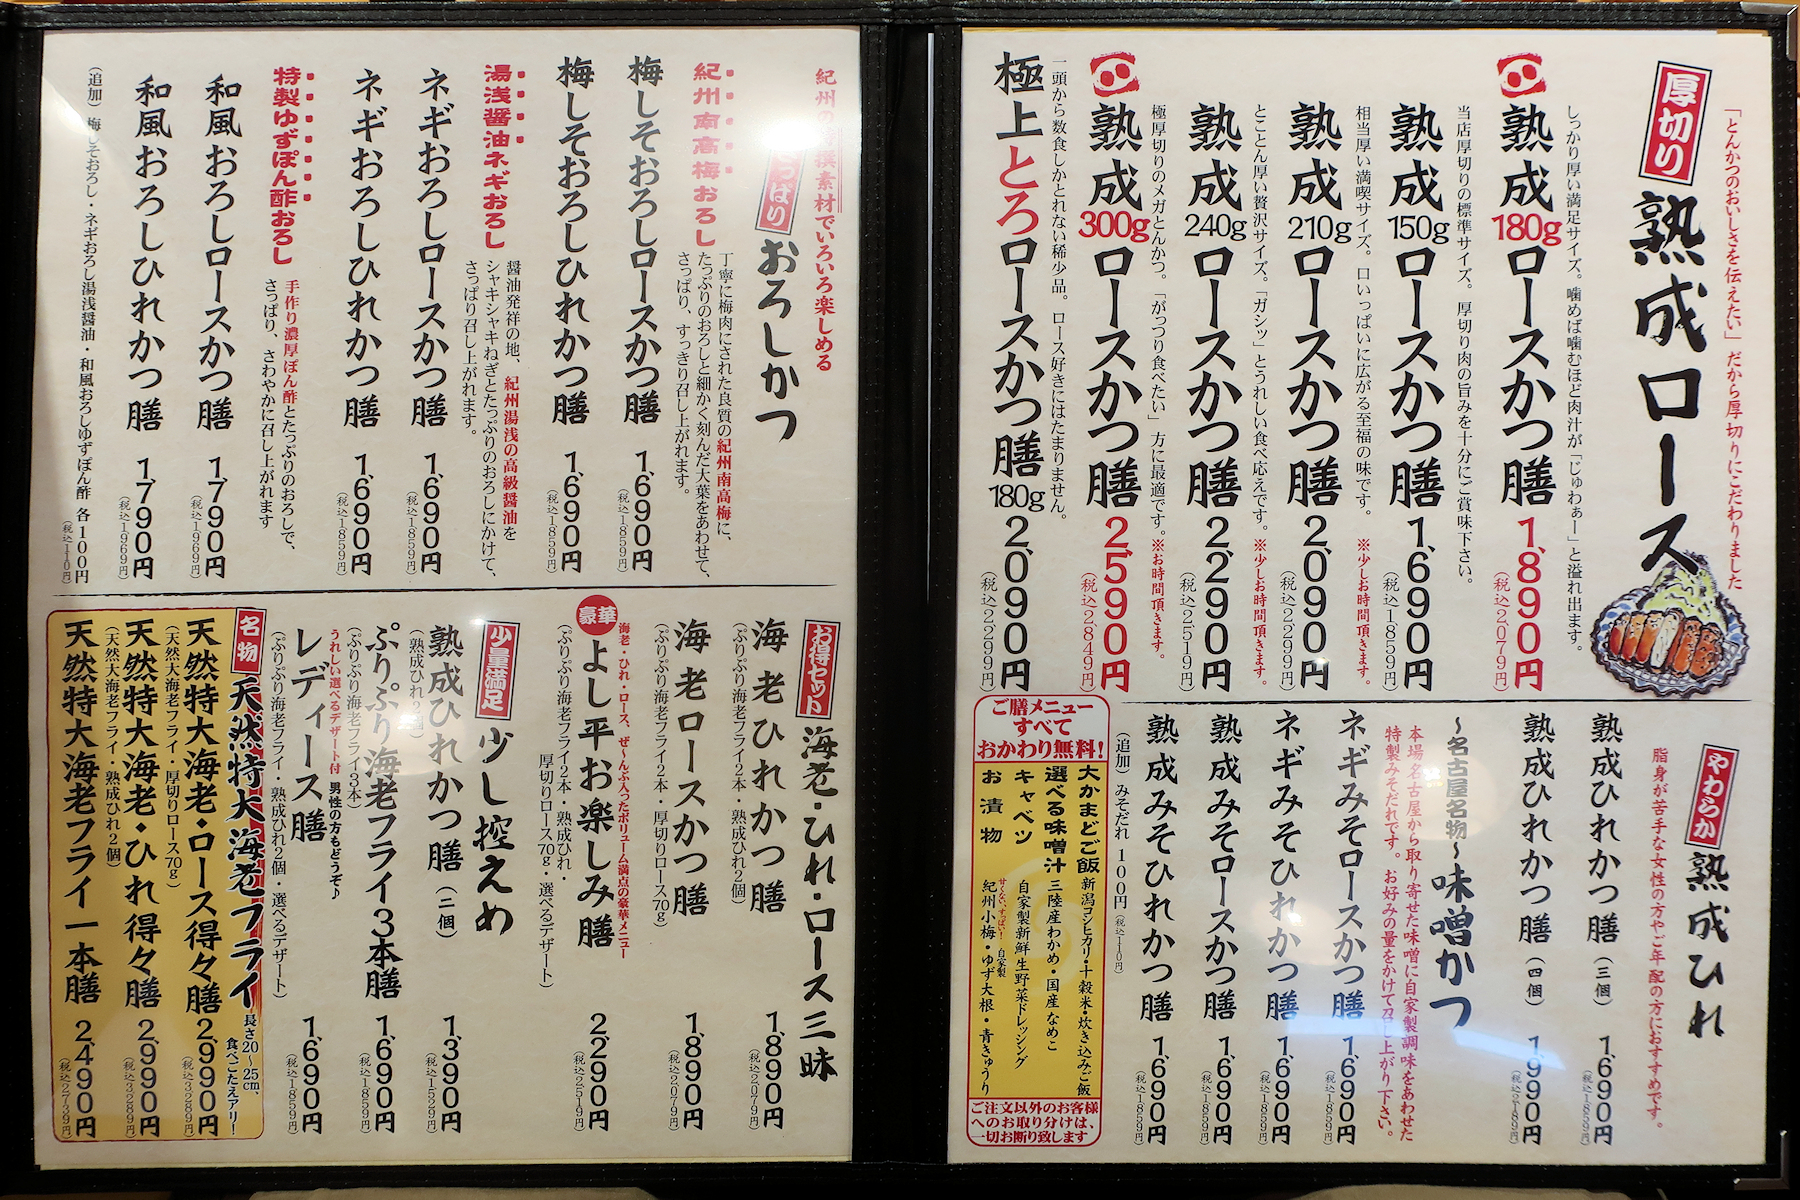 「とんかつのおいしさを伝えたい」だから厚切りにこだわりました
厚切り
熟成ロース
しっかり厚い満足サイズ。噛めば噛むほど肉汁が「じゅわぁー」と溢れ出ます。
熟成180gロースかつ膳 1,890円
(税込2,079円)
当店厚切りの標準サイズ。厚切り肉の旨みを十分にご賞味下さい。
熟成150gロースかつ膳 1,690円
(税込1,859円)
相当厚い満喫サイズ。口いっぱいに広がる至福の味です。※少しお時間頂きます。
熟成210gロースかつ膳 2,090円
(税込2,299円)
とことん厚い贅沢サイズ。「ガシッ」とうれしい食べ応えです。※少しお時間頂きます。
熟成240gロースかつ膳 2,290円
(税込2,519円)
極厚切りのメガとんかつ。「がっつり食べたい」方に最適です。※お時間頂きます。
熟成300gロースかつ膳 2,590円
(税込2,849円)
一頭から数食しかとれない稀少品。ロース好きにはたまりません。
極上とろロースかつ膳180g 2,090円
(税込2,299円)
やわらか
熟成ひれ
脂身が苦手な女性の方やご年配の方におすすめです。
熟成ひれかつ膳(三個) 1,690円
(税込1,859円)
熟成ひれかつ膳(四個) 1,990円
(税込2,189円)
〜名古屋名物〜味噌かつ
本場名古屋から取り寄せた味噌に自家製調味をあわせた
特製みそだれです。お好みの量をかけて召し上がり下さい。
ネギみそロースかつ膳 1,690円
(税込1,859円)
ネギみそひれかつ膳 1,690円
(税込1,859円)
熟成みそロースかつ膳 1,690円
(税込1,859円)
熟成みそひれかつ膳 1,690円
(税込1,859円)
(追加)みそだれ 100円(税込110円)
ご膳メニュー
すべて
おかわり無料!
大かまどご飯 新潟コシヒカリ・十穀米・炊き込みご飯
選べる味噌汁 三陸産わかめ・国産なめこ
キャベツ 自家製新鮮生野菜ドレッシング
お漬物 紀州小梅・ゆず大根・青きゅうり
甘くない、すっぱい! 自家製
ご注文以外のお客様
へのお取り分けは、
一切お断り致します
素材でいろいろ楽しめる
おろしかつ
紀州南高梅おろし
丁寧に梅肉にされた良質の紀州南高梅に、
たっぷりのおろしと細かく刻んだ大葉をあわせて、
さっぱり、すっきり召し上がれます。
梅しそおろしロースかつ膳 1,690円
(税込1,859円)
梅しそおろしひれかつ膳 1,690円
(税込1,859円)
湯浅醤油ネギおろし
醤油発祥の地、紀州湯浅の高級醤油を
シャキシャキねぎとたっぷりのおろしにかけて、
さっぱり召し上がれます。
ネギおろしロースかつ膳 1,690円
(税込1,859円)
ネギおろしひれかつ膳 1,690円
(税込1,859円)
特製ゆずぽん酢おろし
手作り濃厚ぽん酢とたっぷりのおろしで、
さっぱり、さわやかに召し上がれます
和風おろしロースかつ膳 1,790円
(税込1,969円)
和風おろしひれかつ膳 1,790円
(税込1,969円)
(追加)梅しそおろし・ネギおろし湯浅醤油・和風おろしゆずぽん酢 各100円
(税込110円)
お得セット
海老・ひれ・ロース三昧
海老ひれかつ膳 1,890円
(ぷりぷり海老フライ2本・熟成ひれ2個) (税込2,079円)
海老ロースかつ膳 1,890円
(ぷりぷり海老フライ2本・厚切りロース70g) (税込2,079円)
海老・ひれ・ロース、ぜ〜んぶ入ったボリューム満点の豪華メニュー
豪華
よし平お楽しみ膳 2,290円
(ぷりぷり海老フライ2本・熟成ひれ・ (税込2,519円)
厚切りロース70g・選べるデザート)
少量満足
少し控えめ
熟成ひれかつ膳(二個) 1,390円
(熟成ひれ2個) (税込1,529円)
ぷりぷり海老フライ3本膳 1,690円
(ぷりぷり海老フライ3本) (税込1,859円)
うれしい選べるデザート付 男性の方もどうぞ♪
レディース膳 1,690円
(ぷりぷり海老フライ・熟成ひれ2個・選べるデザート) (税込1,859円)
名物
天然特大海老フライ
長さ20〜25cm、
食べごたえアリ!
天然特大海老・ロース得々膳 2,990円
(天然大海老フライ・厚切りロース70g) (税込3,289円)
天然特大海老・ひれ得々膳 2,990円
(天然大海老フライ・熟成ひれ2個) (税込3,289円)
天然特大海老フライ一本膳 2,490円
(税込2,739円)